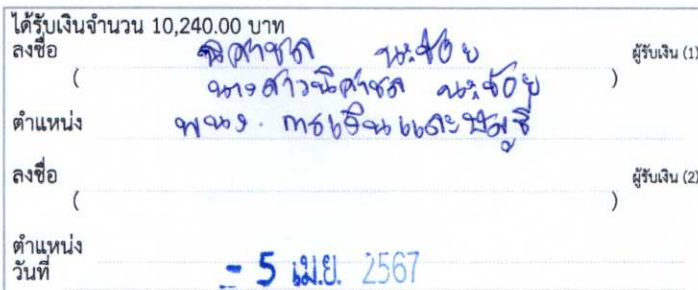 ได้รับเงินจำนวน 10,240.00 บาท
ลงชื่อ นิศาชล นะช้อย ผู้รับเงิน (1)
( นางสาวนิศาชล นะช้อย )
ตำแหน่ง พนง. การเงินและบัญชี
ลงชื่อ ผู้รับเงิน (2)
( )
ตำแหน่ง
วันที่ - 5 เม.ย. 2567